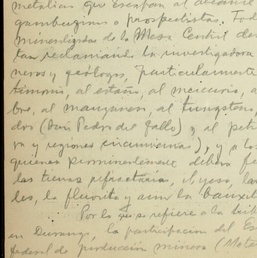 metálicas que escapan al alcance
gambusinos o prospectistas. Tod
mineralizadas de la Mesa Central de
tan reclamando la investigadora
neros y geólogos, particularmente
timonio, al estaño, al mercurio, a
bre, al manganeso, al tungsteno,
do (San Pedro del Gallo) y al petr
ra y regiones circunvecinas), y a lo
quienes prominentemente deben fo
las tierras refractarias, el yeso, la
les, la fluorita y aun la bauxit
Por lo que se refiere a la trib
en Durango, la participación del Es
federal de producción minera (Mate